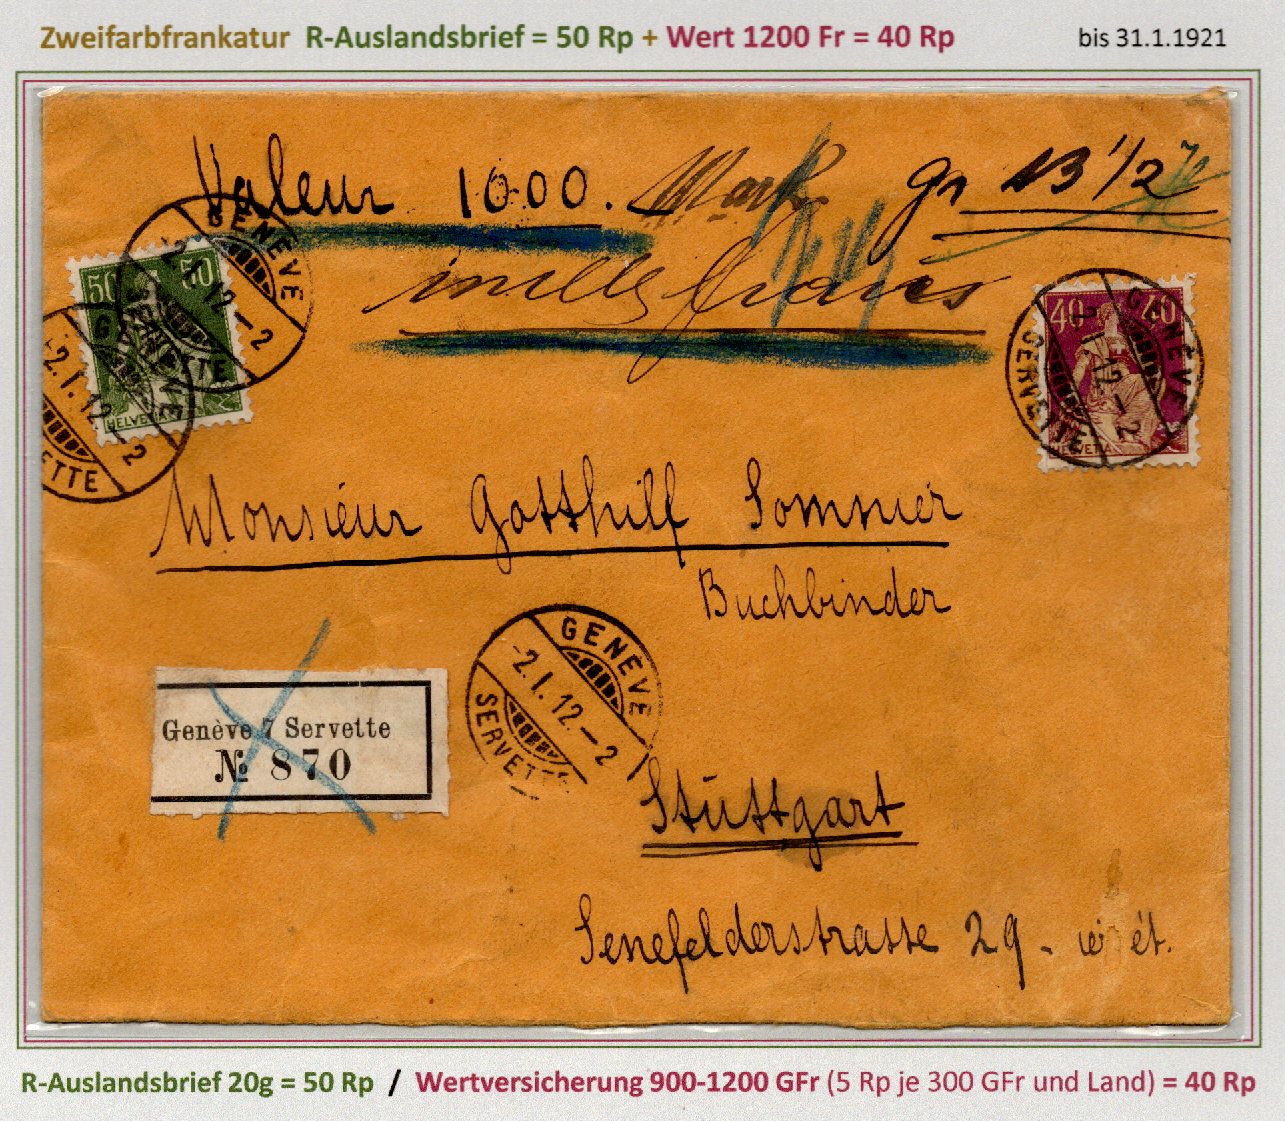 Zweifarbfrankatur R-Auslandsbrief = 50 Rp + Wert 1200 Fr = 40 Rp bis 31.1.1921
Valeur 1000. Mark gr 13 1/2
mille francs
50 50
HELVETIA
GENÈVE
2.I.12.-2
SERVETTE
GENÈVE
-2.I.12.-2
SERVETTE
40 40
HELVETIA
GENÈVE
-2.I.12.-2
SERVETTE
Monsieur Gotthilf Sommer
Buchbinder
GENÈVE
-2.I.12.-2
SERVETTE
Genève 7 Servette
№ 870
Stuttgart
Senefelderstrasse 29 - ét.
R-Auslandsbrief 20g = 50 Rp / Wertversicherung 900-1200 GFr (5 Rp je 300 GFr und Land) = 40 Rp